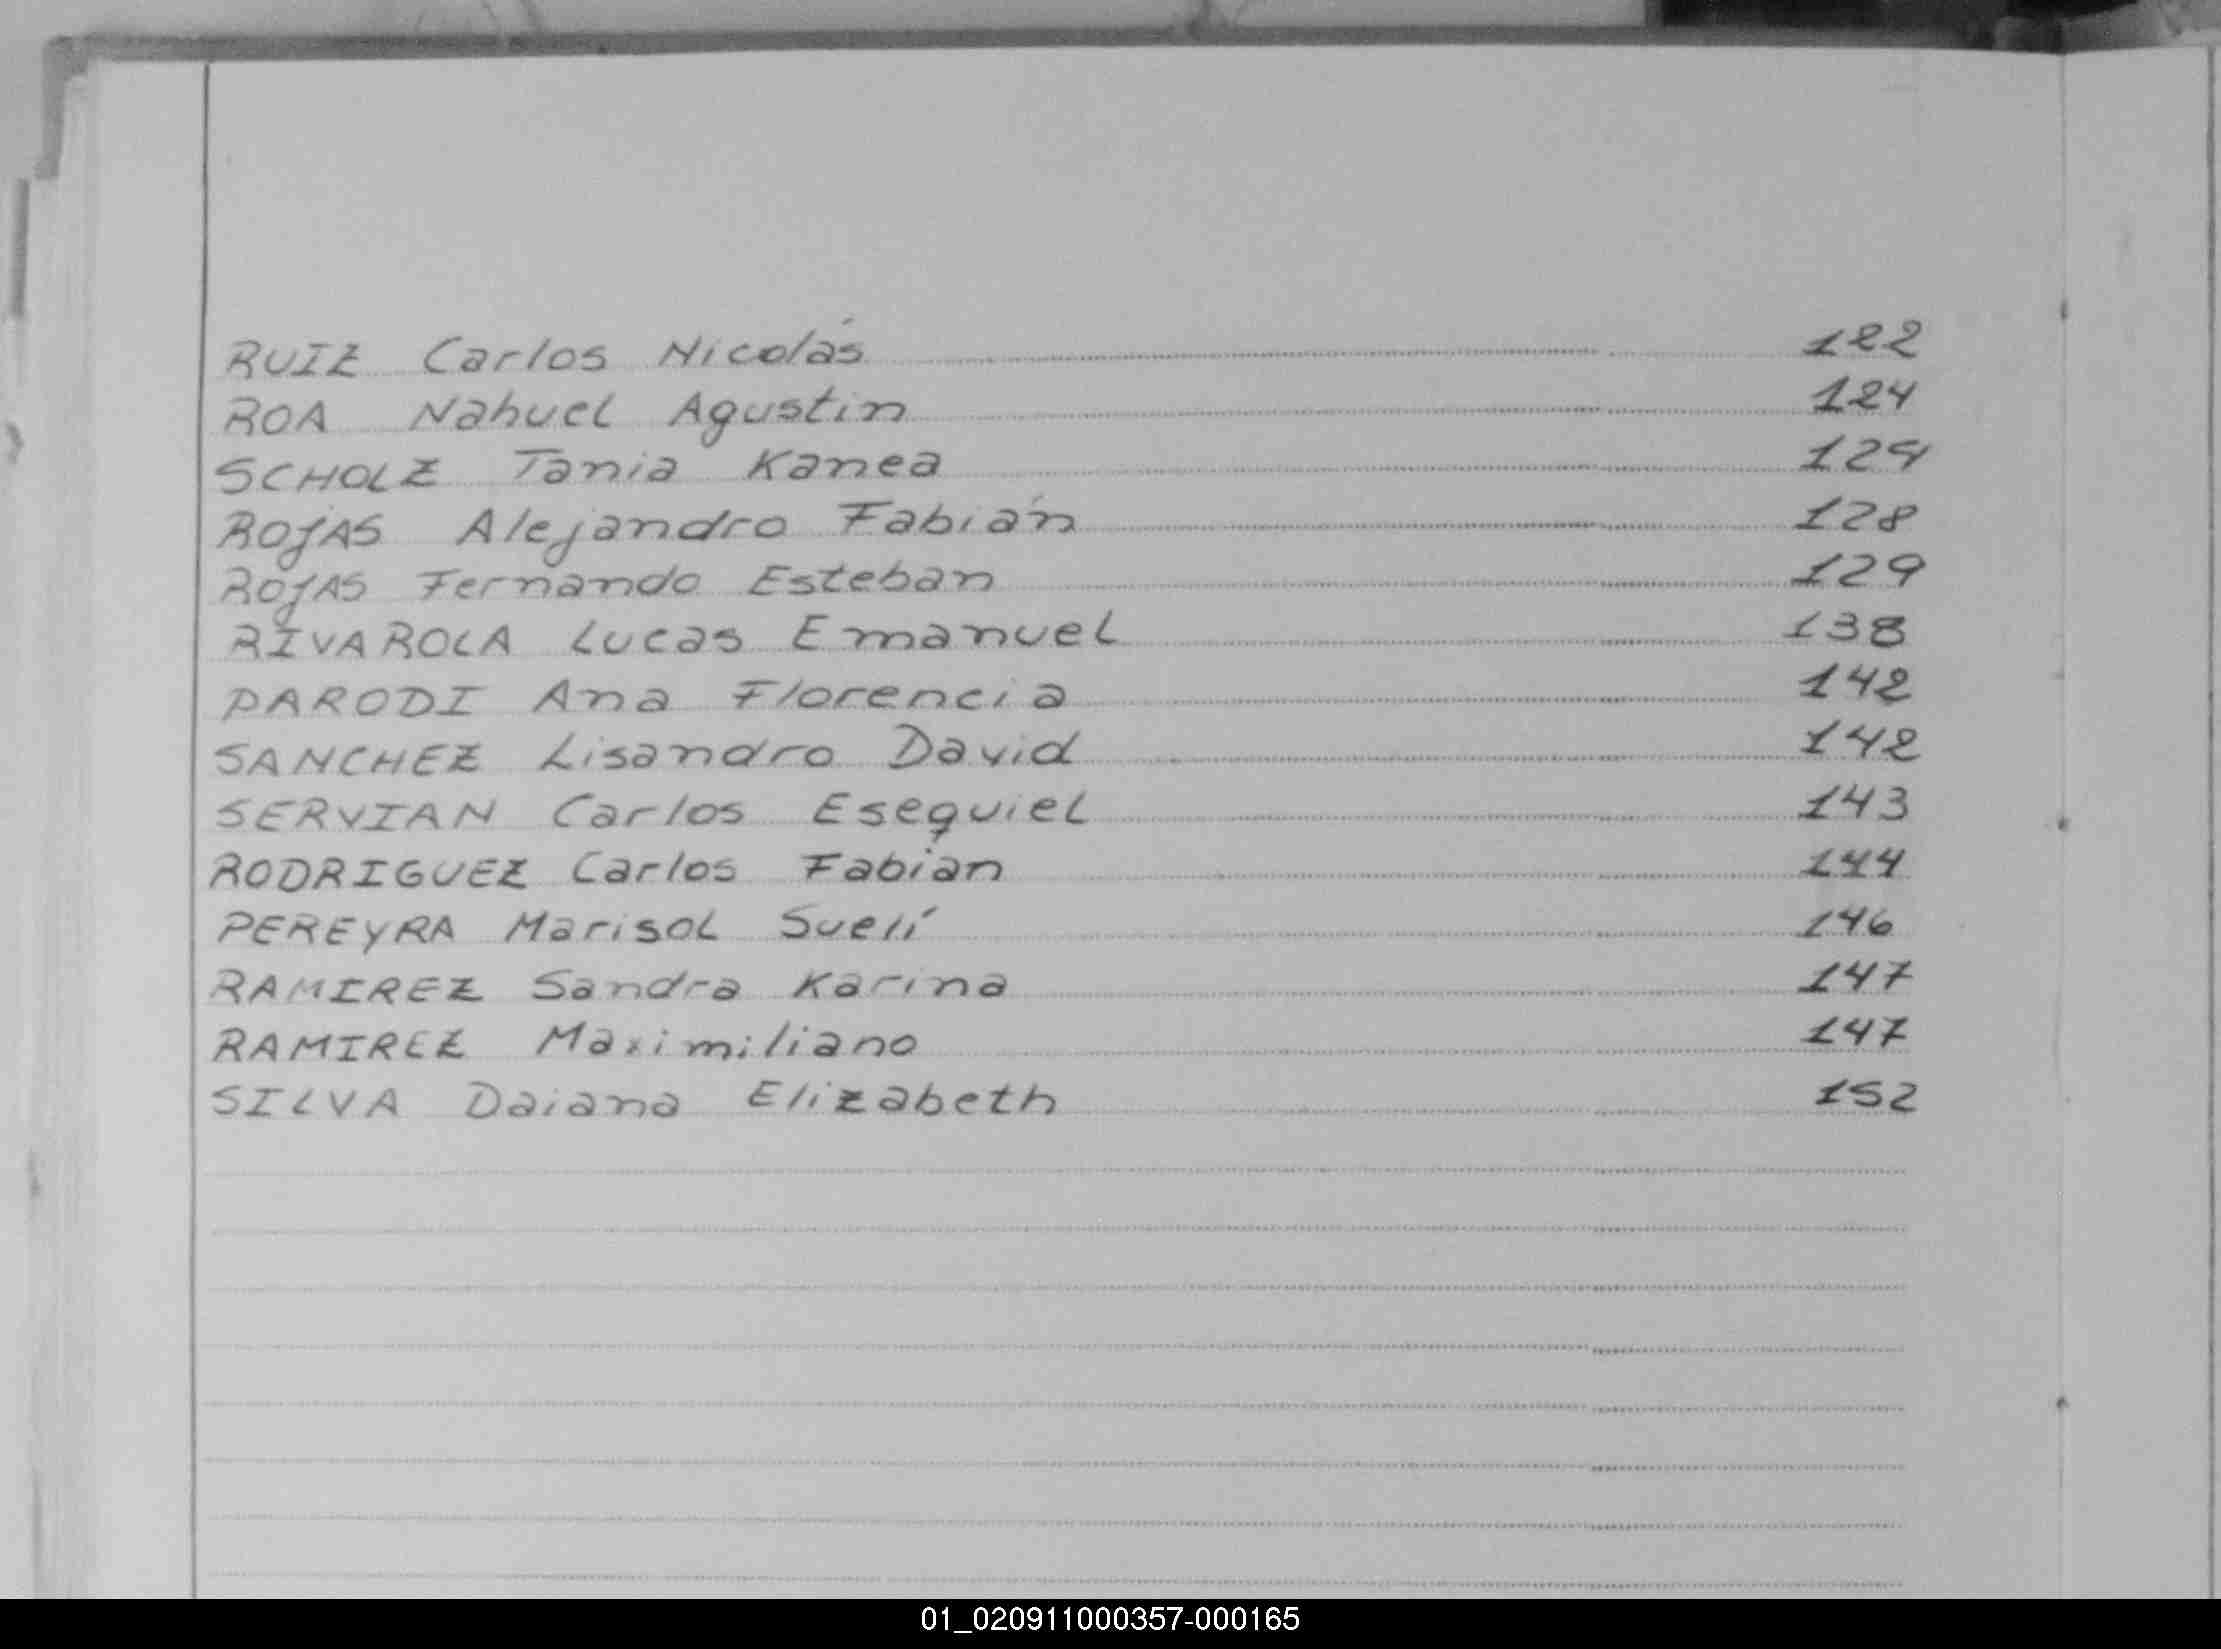 RUIZ Carlos Nicolás 122
ROA Nahuel Agustin 124
SCHOLZ Tania Kanea 124
ROJAS Alejandro Fabián 128
ROJAS Fernando Esteban 129
RIVAROLA Lucas Emanuel 138
PARODI Ana Florencia 142
SANCHEZ Lisandro David 142
SERVIAN Carlos Esequiel 143
RODRIGUEZ Carlos Fabian 144
PEREYRA Marisol Suelí 146
RAMIREZ Sandra Karina 147
RAMIREZ Maximiliano 147
SILVA Daiana Elizabeth 152
01_020911000357-000165